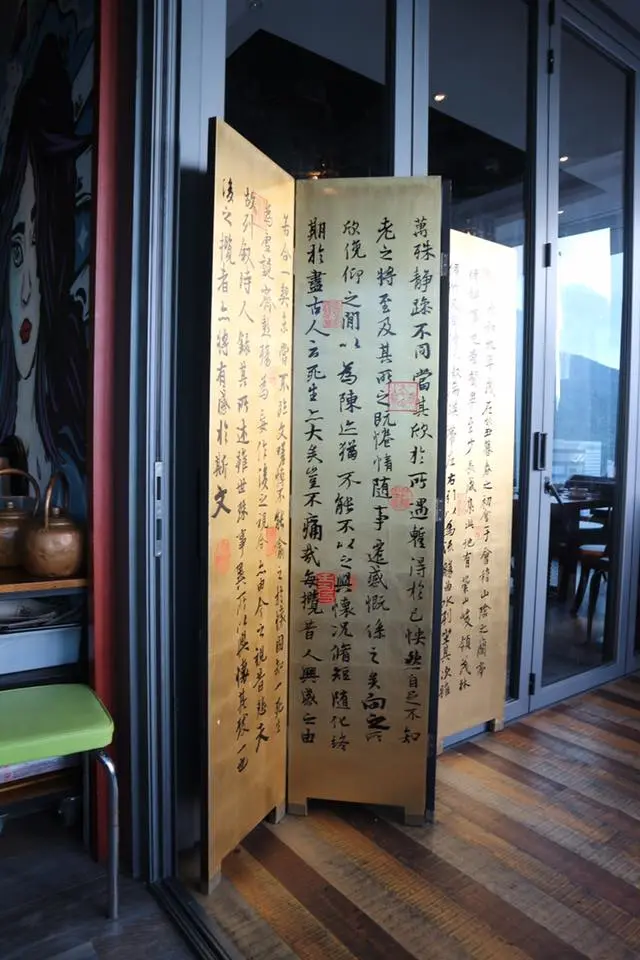 和九年歲在癸丑暮春之初會于會稽山陰之蘭亭
脩稧事也羣賢畢至少長咸集此地有崇山峻領茂林
帶左右引以為流觴曲水列坐其次雖
萬殊靜躁不同當其欣於所遇蹔得於己怏然自足不知
老之將至及其所之既惓情隨事遷感慨係之矣向之所
欣俛仰之閒以為陳迹猶不能不以之興懷況脩短隨化終
期於盡古人云死生亦大矣豈不痛哉每攬昔人興感之由
若合一契未嘗不臨文嗟悼不能喻之於懷固知一死生
為虛誕齊彭殤為妄作後之視今亦由今之視昔悲夫
故列敘時人錄其所述雖世殊事異所以興懷其致一也
後之攬者亦將有感於斯文